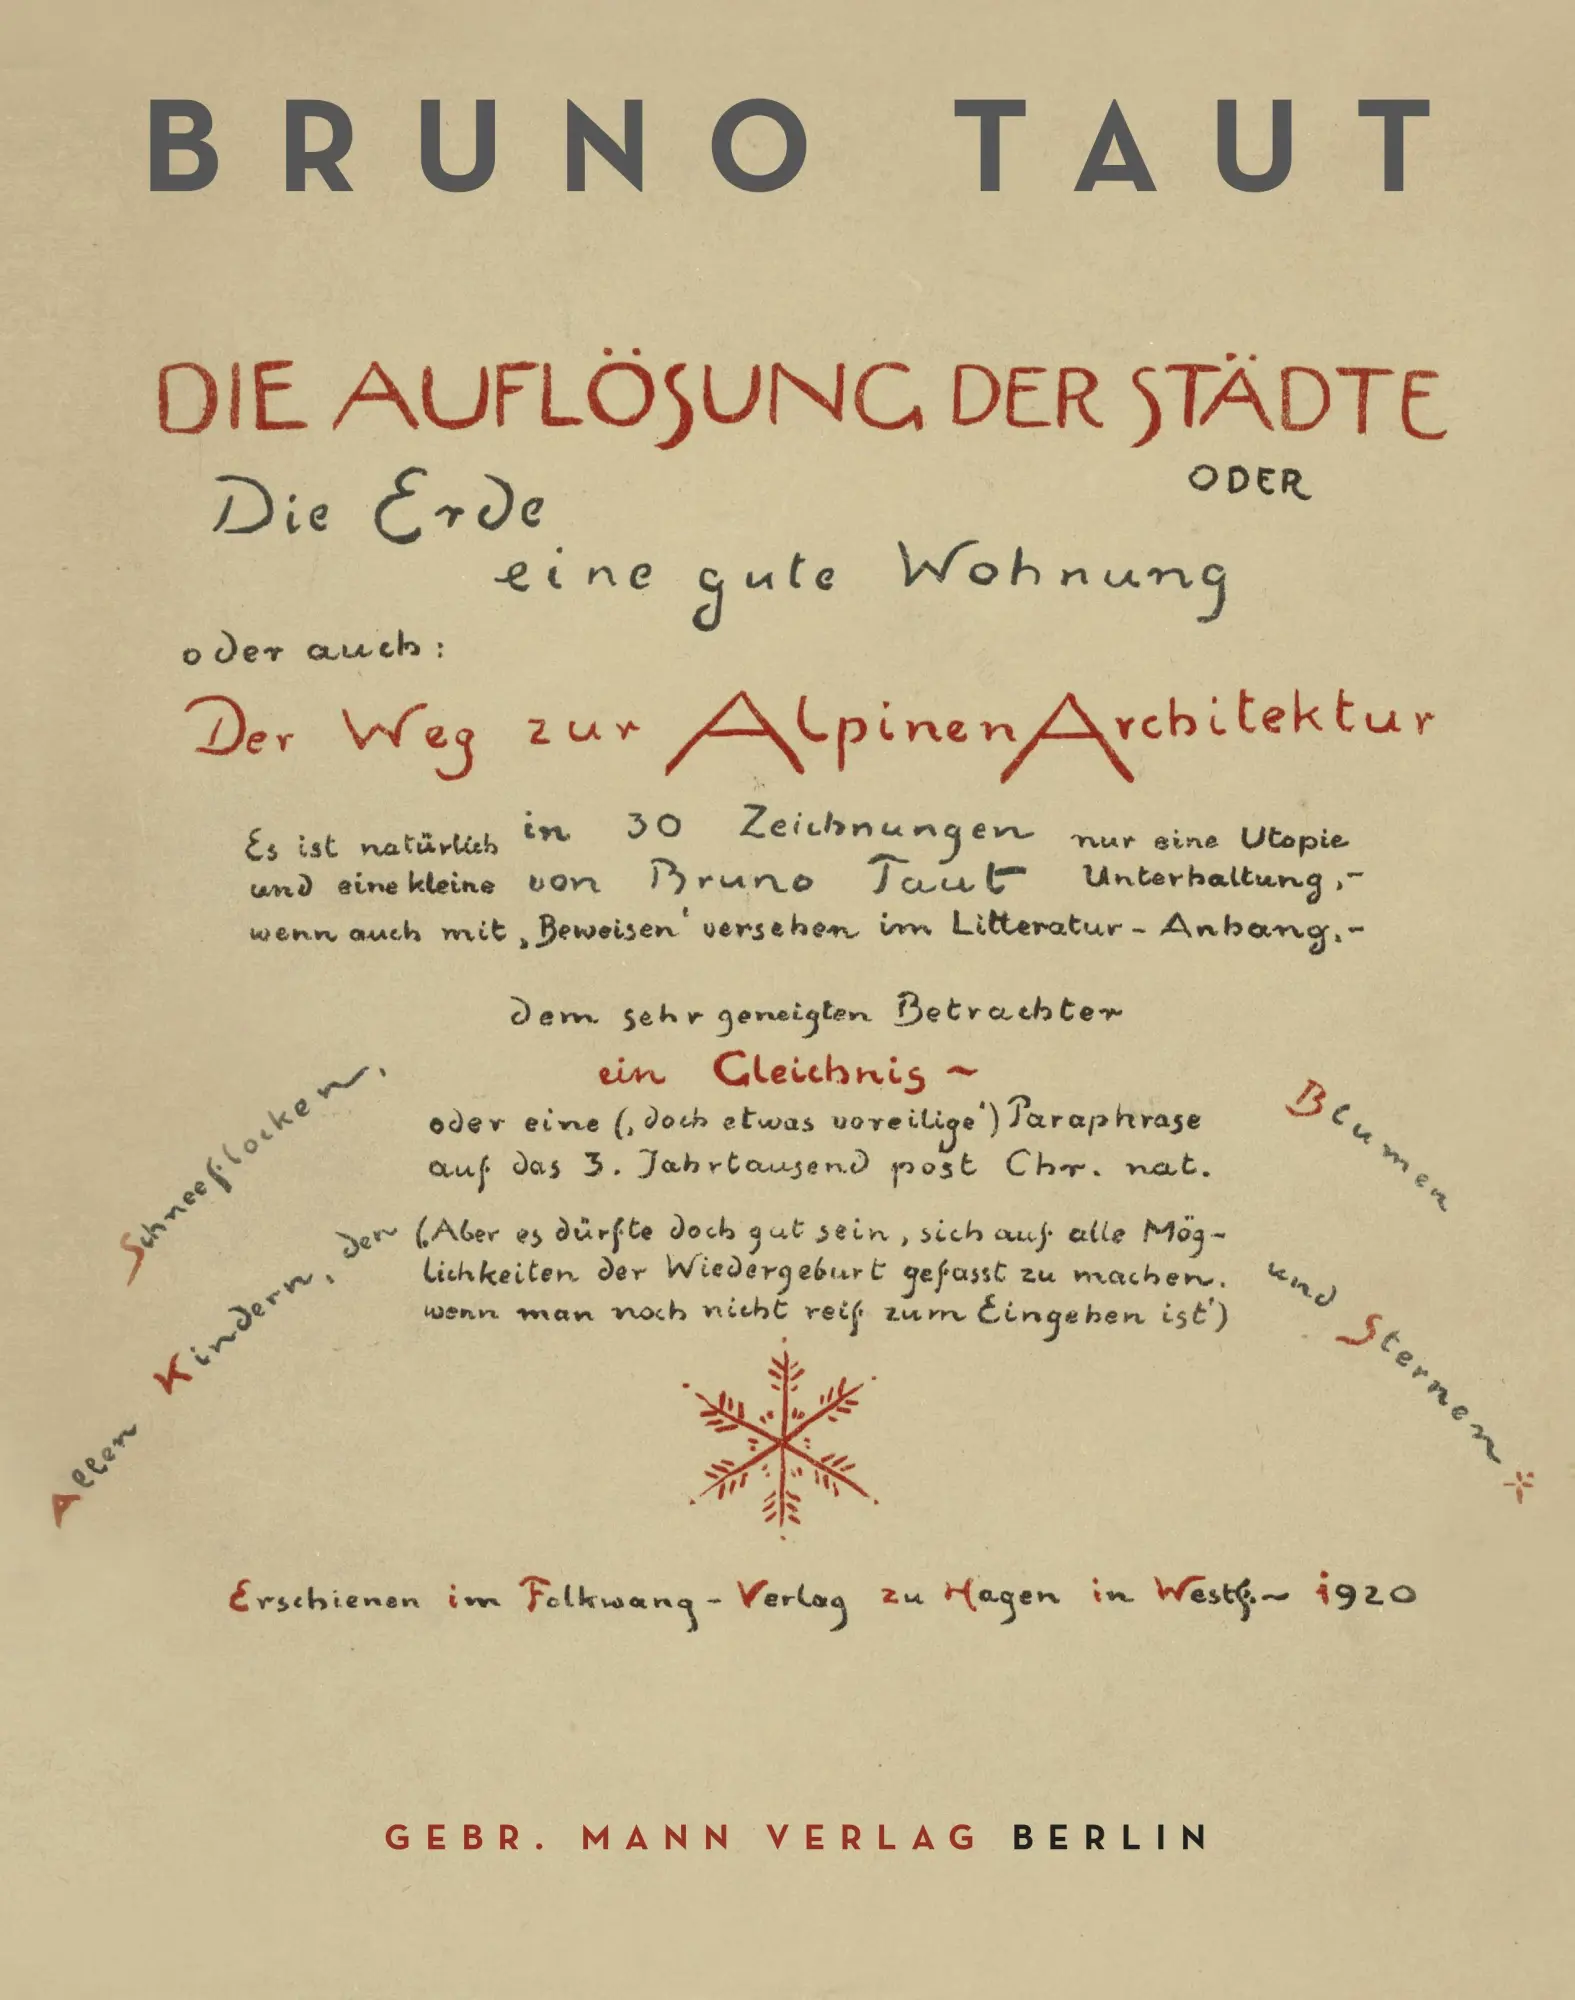 BRUNO TAUT
DIE AUFLÖSUNG DER STÄDTE
ODER
Die Erde
eine gute Wohnung
oder auch:
Der Weg zur Alpinen Architektur
in 30 Zeichnungen
von Bruno Taut
Es ist natürlich nur eine Utopie
und eine kleine Unterhaltung,-
wenn auch mit ‚Beweisen‘ versehen im Litteratur-Anhang,-
dem sehr geneigten Betrachter
ein Gleichnis ~
oder eine (‚doch etwas voreilige‘) Paraphrase
auf das 3. Jahrtausend post Chr. nat.
(‚Aber es dürfte doch gut sein, sich auf alle Mög-
lichkeiten der Wiedergeburt gefasst zu machen.
wenn man noch nicht reif zum Eingehen ist‘)
Allen Kindern, den
Schneeflocken,
Blumen
und Sternen
Erschienen im Folkwang-Verlag zu Hagen in Westf.~ 1920
GEBR. MANN VERLAG BERLIN